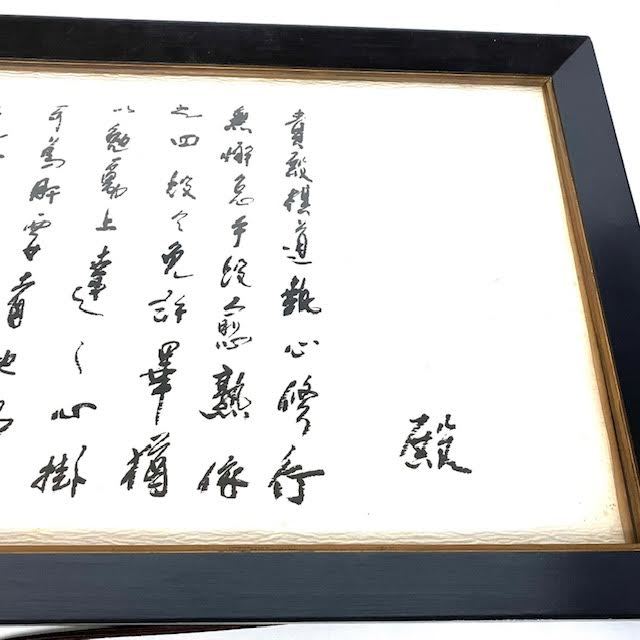 殿
貴殿棋道執心修行
無懈怠手段愈熟依
之四段令免許畢猶
以勉勵上達之心掛
可為肝要者也仍